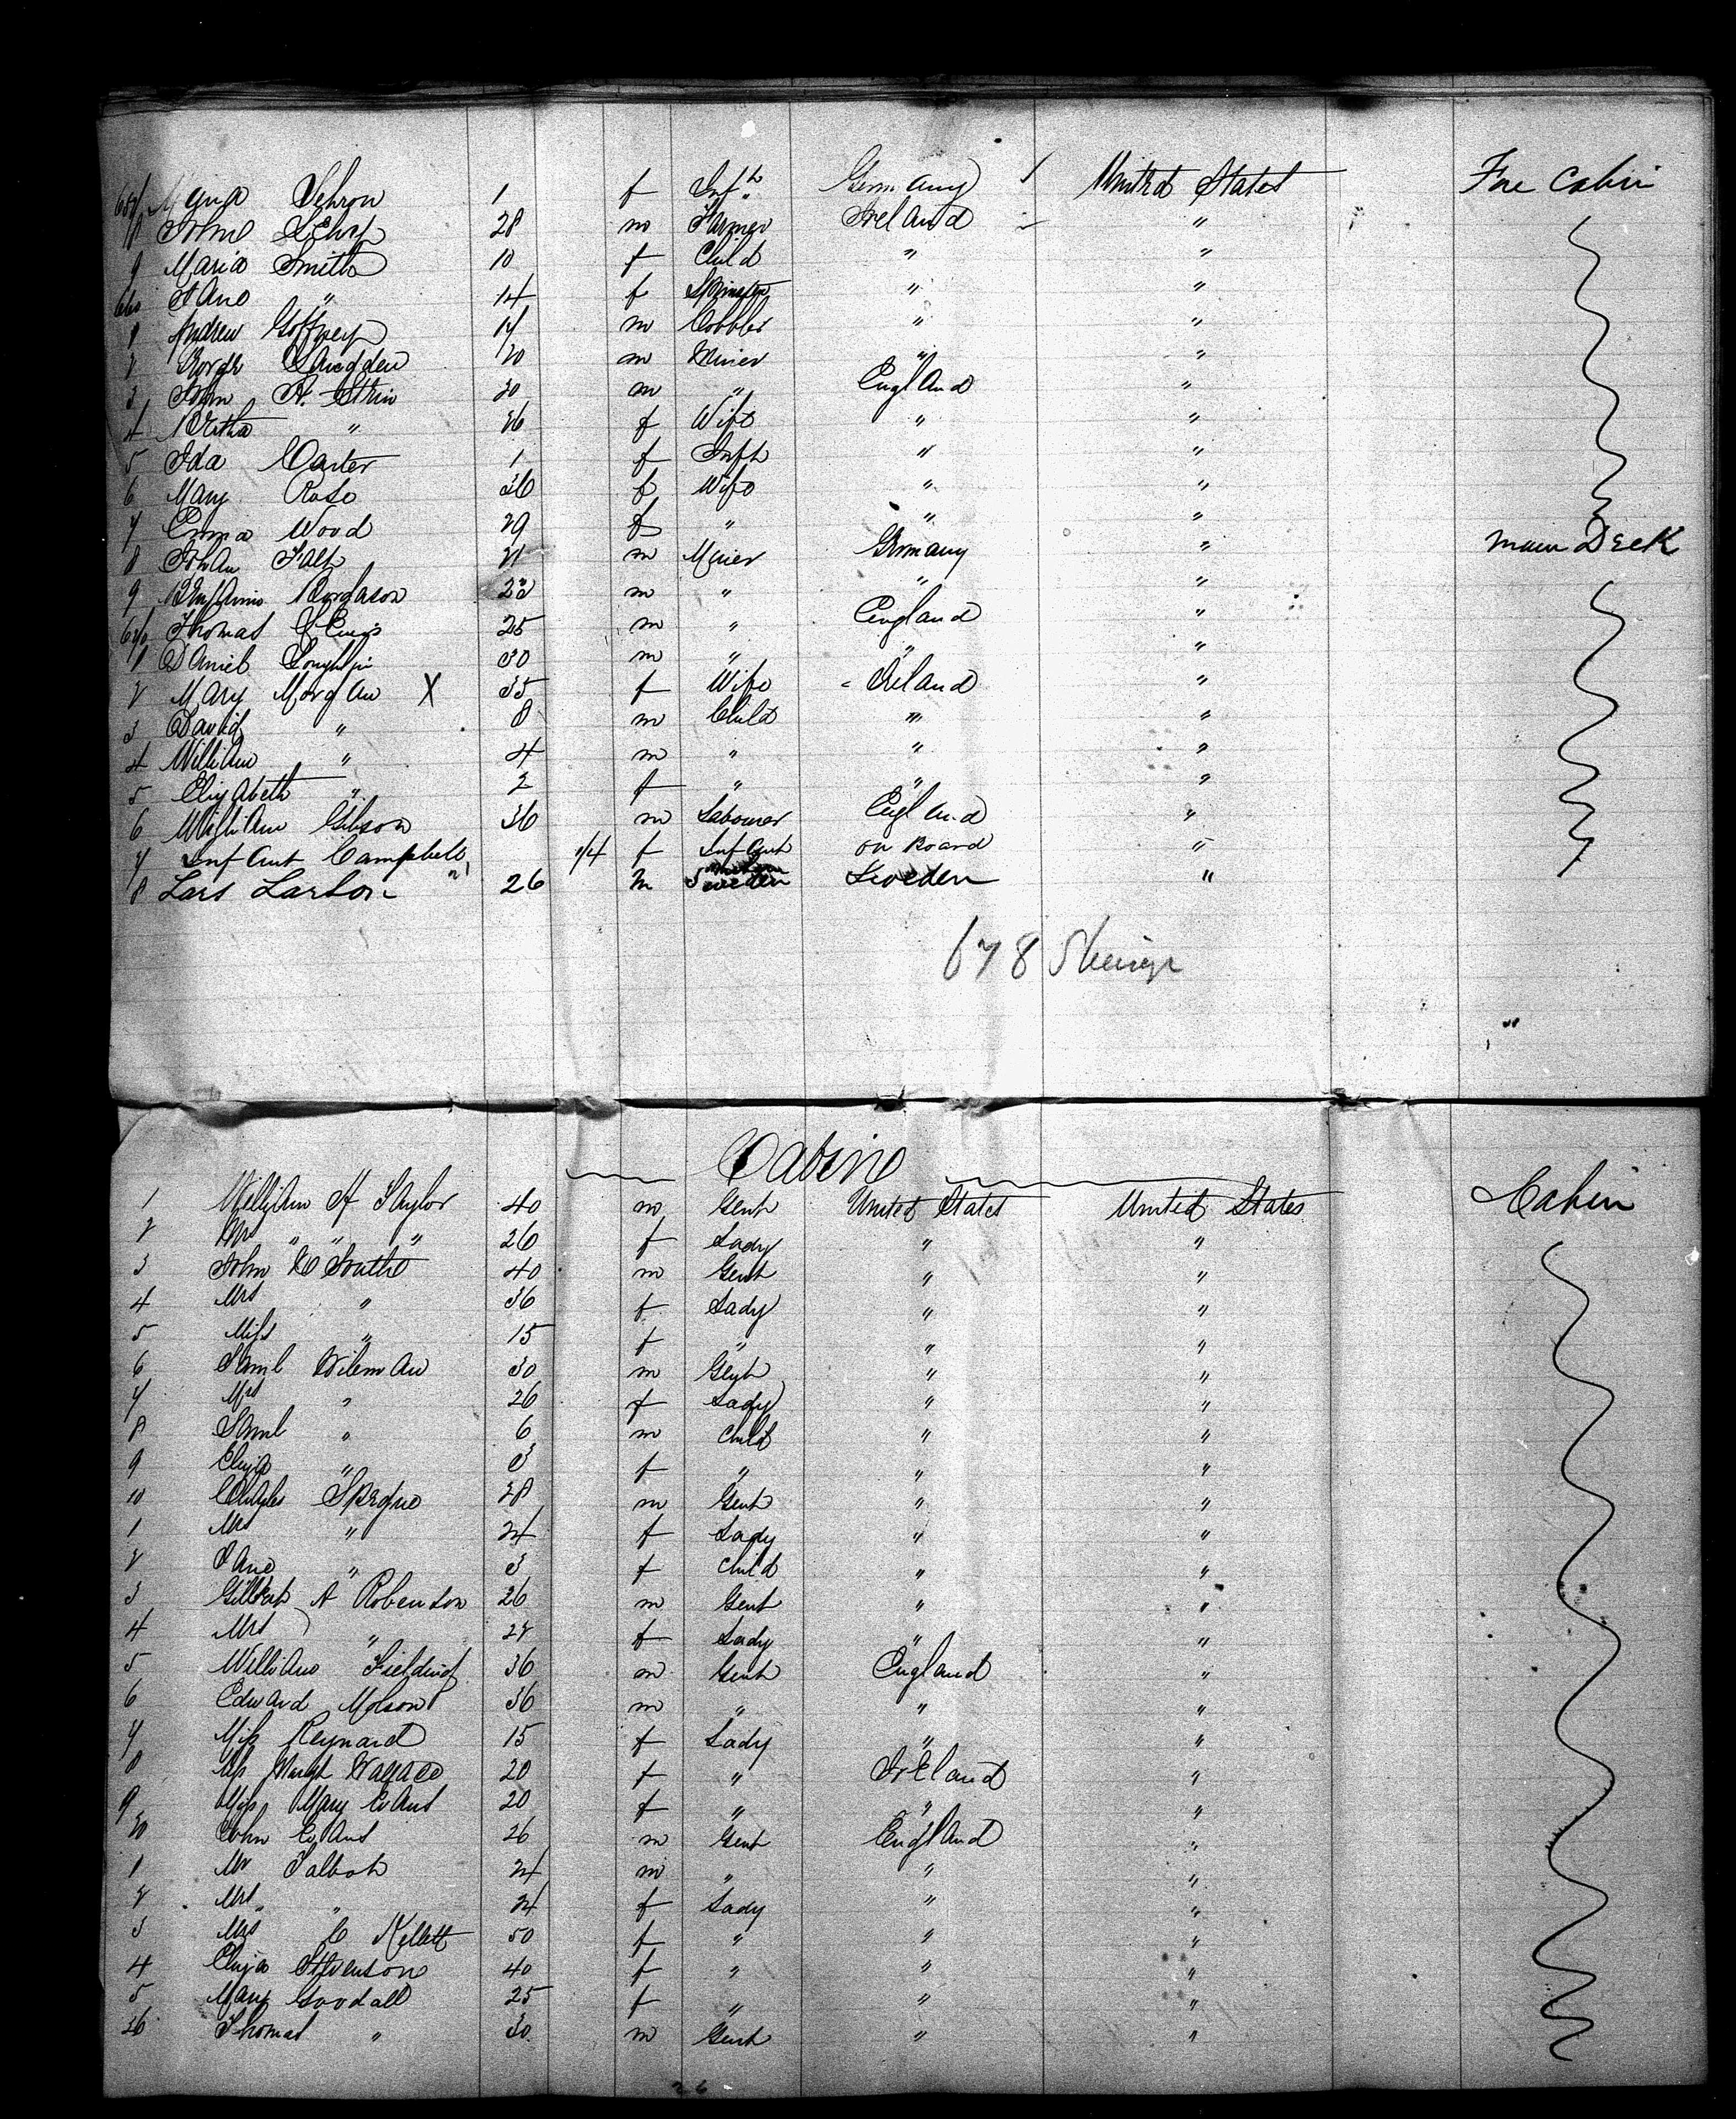 1 f Inft Germany United States Fore Cabin
8 John 28 m Farmer Ireland "
9 Maria Smith 10 f Child " "
660 Jane " 14 f Spinster " "
1 Andrew Goffney m Cobbler " "
2 George 20 m Miner " "
3 John H. Stein 30 m " England "
4 Bertha " 26 f Wife " "
5 Ida Carter 1 f Inft " "
6 Mary Rose 36 f Wife " "
7 Emma Wood 29 f " " "
8 Johan Falk 21 m Miner Germany " Main Deck
9 Benjamin m " " "
670 Thomas 25 m " England "
1 Daniel Loughlin 30 m " " "
2 Mary Morgan X 35 f Wife Ireland "
3 David " 8 m Child " "
4 William " 4 m " " "
5 Elizabeth " 2 f " " "
6 William Gibson 36 m Labourer England "
7 Infant Campbell 1/4 f Infant on Board "
8 Lars Larson 26 m Sweden "
678 Steerage
Cabin
1 William H Taylor 40 m Gent United States United States Cabin
2 Mrs " " " 26 f Lady " "
3 John 40 m Gent " "
4 Mrs " 36 f Lady " "
5 Miss " 15 f " " "
6 Saml Wileman 30 m Gent " "
7 Mrs " 26 f Lady " "
8 Saml " 6 m Child " "
9 Eliza " 3 f " " "
10 Charles Sprague 28 m Gent " "
1 Mrs " 24 f Lady " "
2 Jane " 3 f Child " "
3 Gilbert A Robenson 26 m Gent " "
4 Mrs " 22 f Lady " "
5 William Fielding 36 m Gent England "
6 Edward Molson 36 m " " "
7 Miss Reynard 15 f Lady " "
8 Wallace 20 f " Ireland "
9 Miss Mary Evans 20 f " " "
20 John Evans 26 m Gent England "
1 Mr Talbot 24 m " " "
2 Mrs " 24 f Lady " "
3 Mrs C Kellett 50 f " " "
4 Eliza Stevenson 40 f " " "
5 Mary Goodall 25 f " " "
26 Thomas " 30 m Gent " "
26